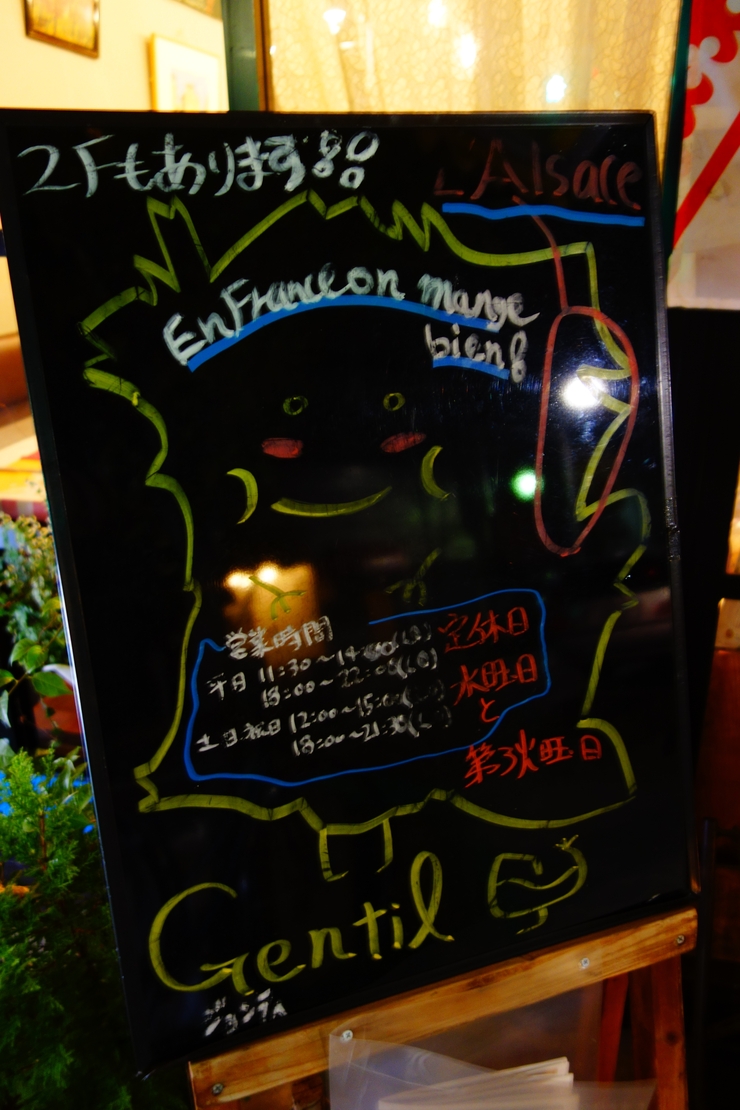 2Fもあります!!
L'Alsace
En France on mange
bien!
営業時間
平日 11:30～14:00(LO)
18:00～22:00(LO)
土・日・祝日 12:00～15:00
18:00～21:30
定休日
水曜日
と
第3火曜日
Gentil
ジョンティ